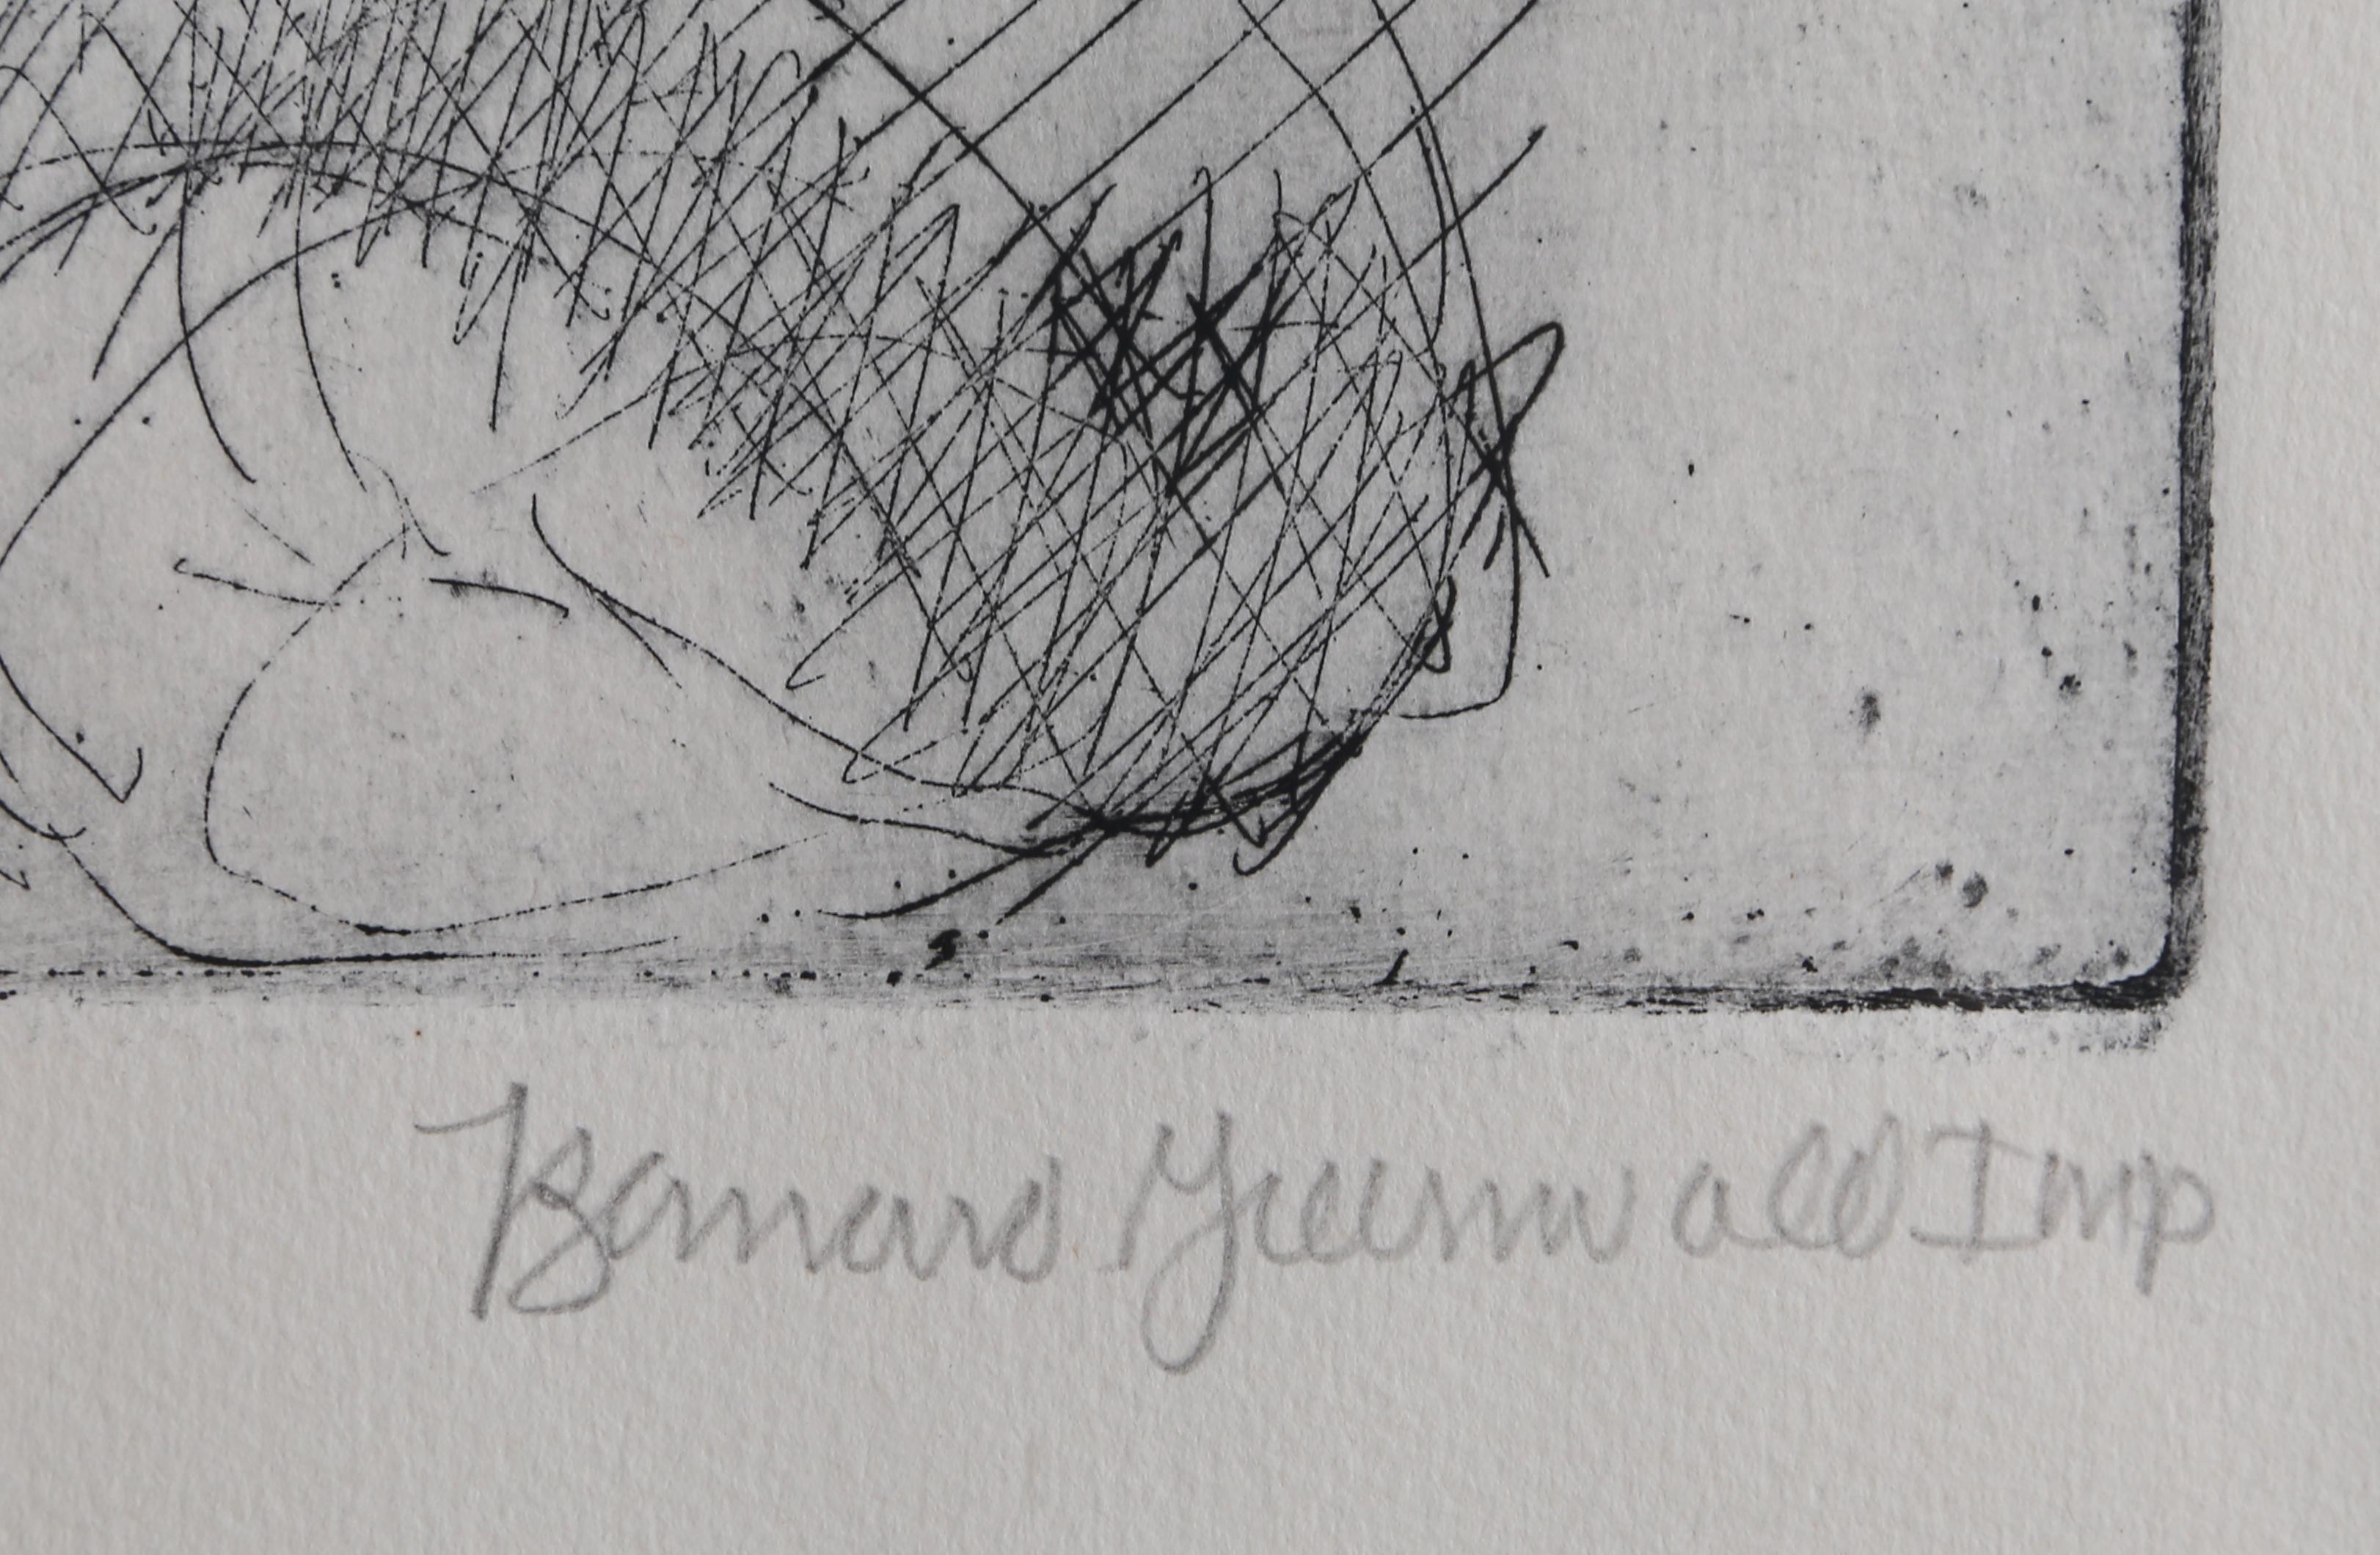 Barnard Greenwald Imp